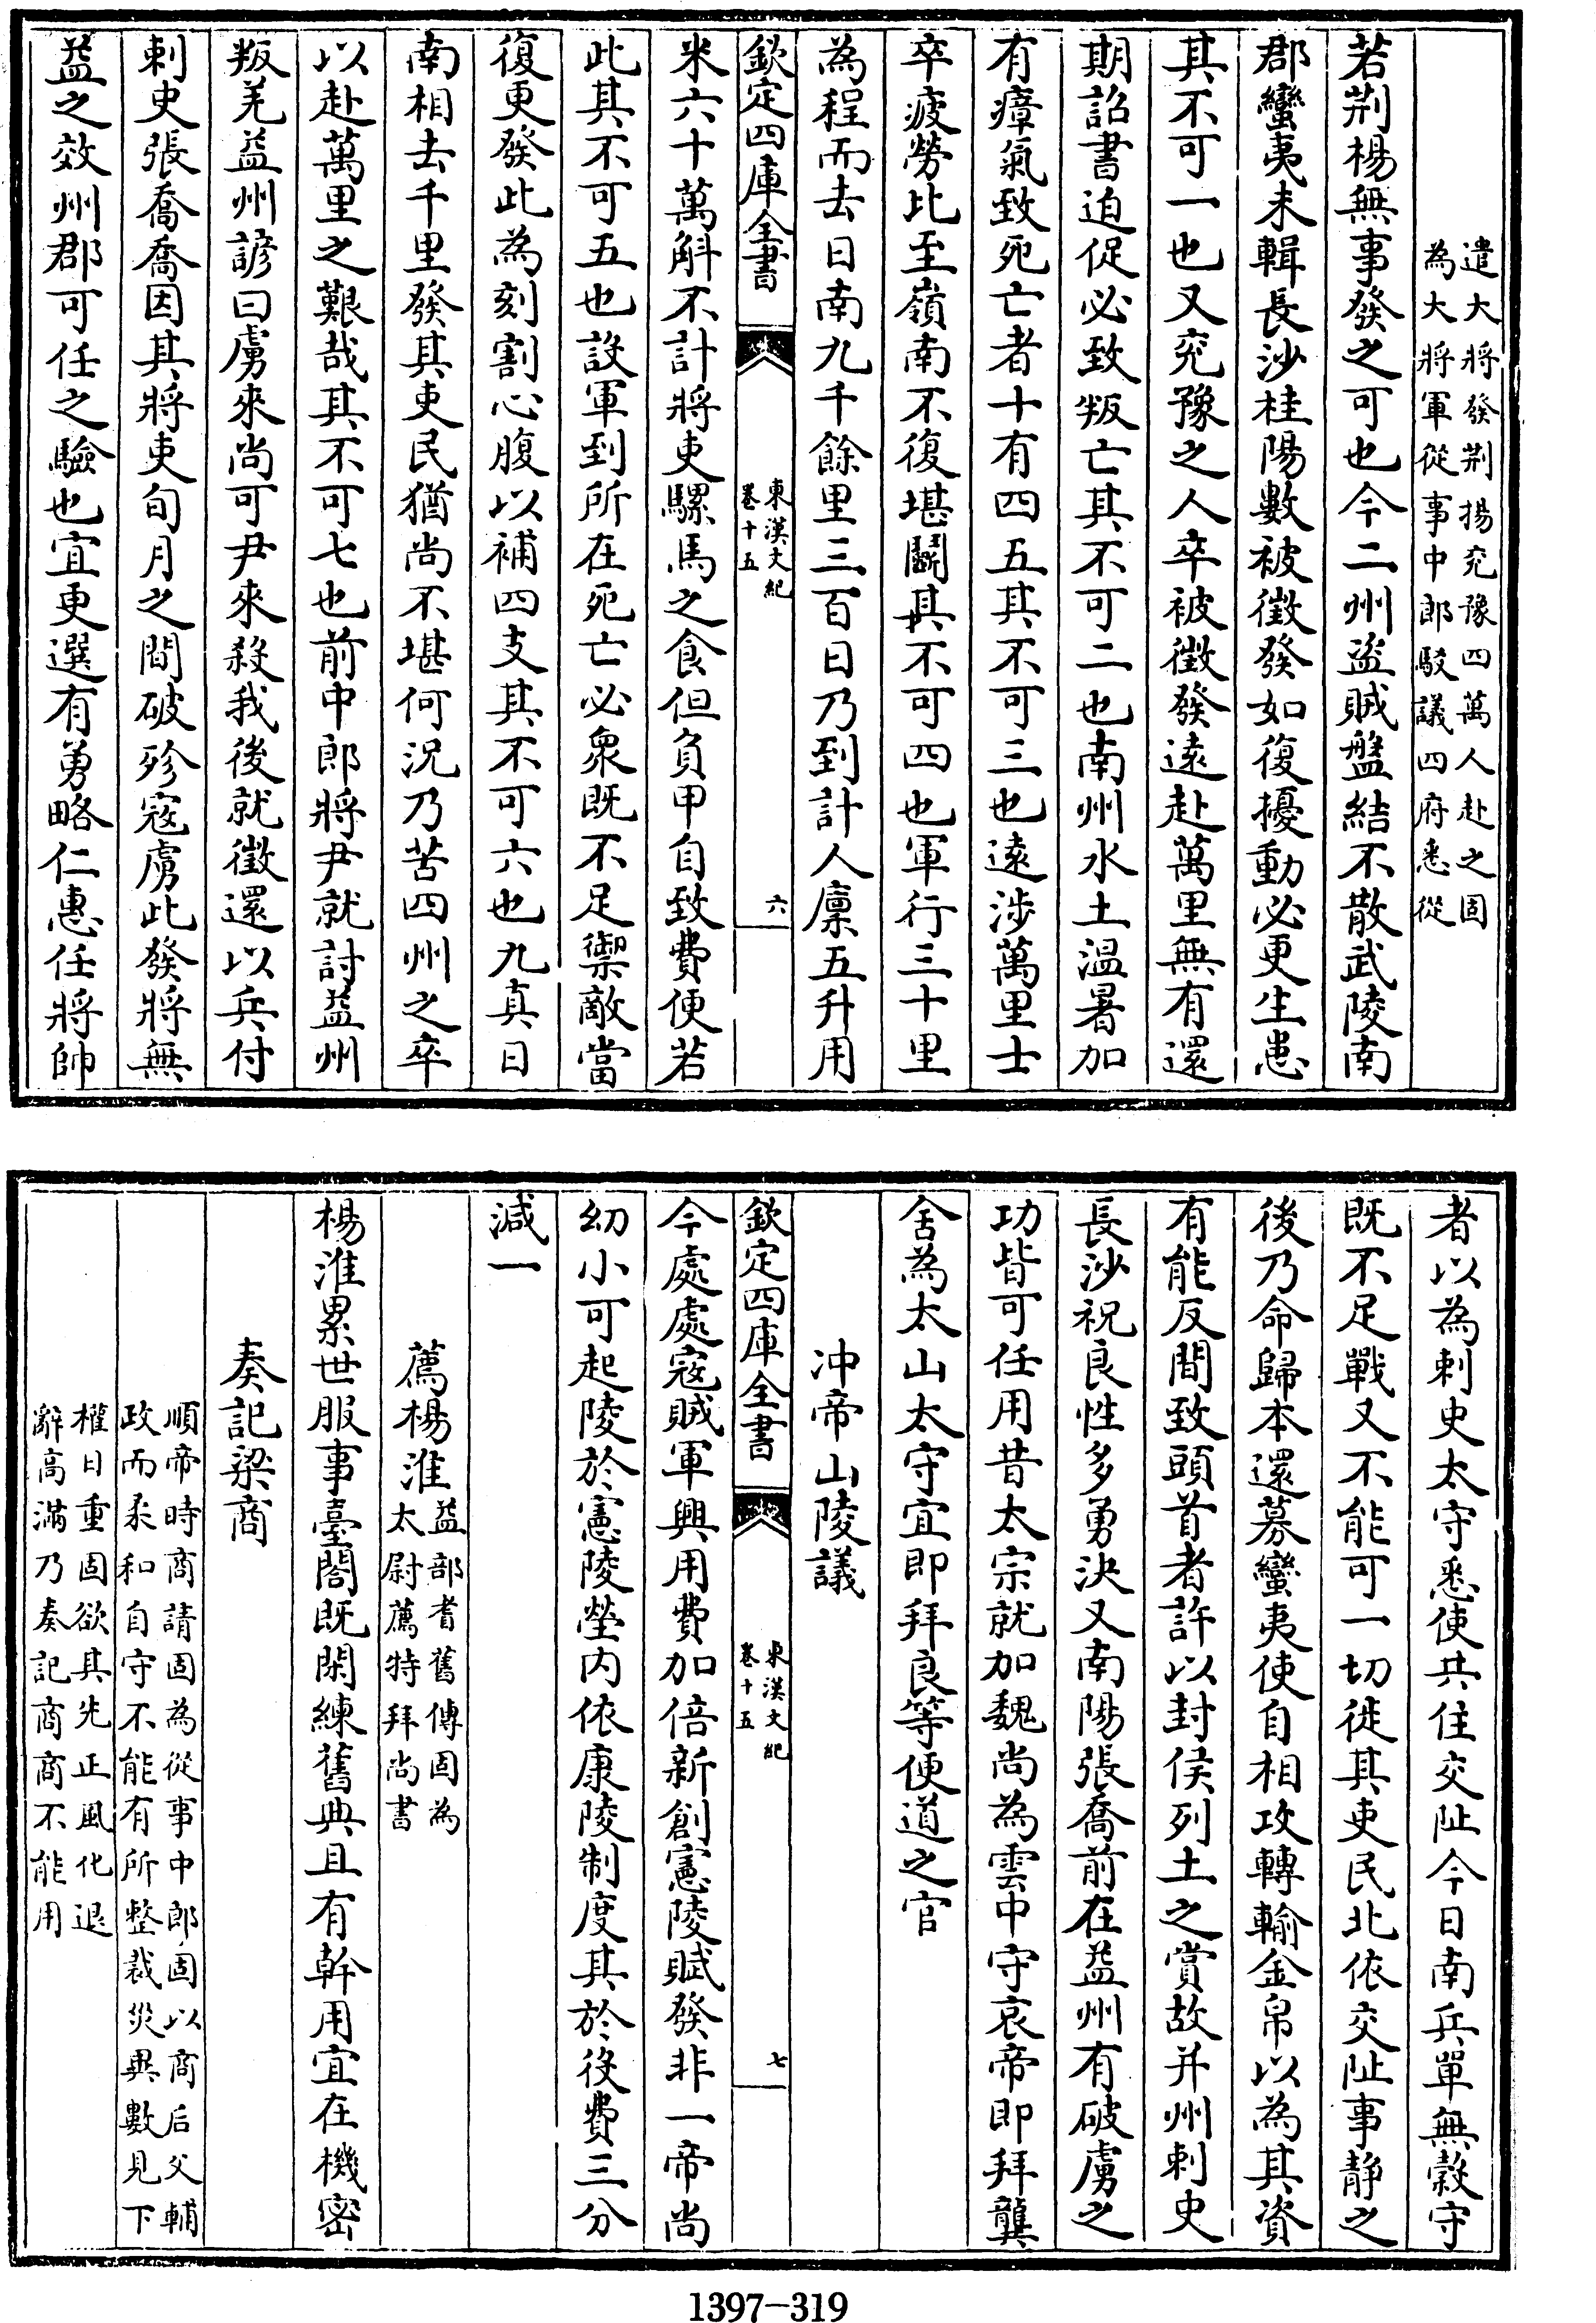 遣大將發荆揚兖豫四萬人赴之固
為大將軍從事中郎駁議四府悉從
若荆楊無事發之可也今二州盗賊盤結不散武陵南
郡蠻夷未輯長沙桂陽數被徵發如復擾動必更生患
其不可一也又兖豫之人卒被徵發逺赴萬里無有還
期詔書迫促必致叛亡其不可二也南州水土温暑加
有瘴氣致死亡者十有四五其不可三也逺涉萬里士
卒疲勞比至嶺南不復堪鬬其不可四也軍行三十里
為程而去日南九千餘里三百日乃到計人廪五升用
欽定四庫全書
東漢文紀
卷十五
六
米六十萬斛不計將吏騾馬之食但負甲自致費便若
此其不可五也設軍到所在死亡必衆既不足禦敵當
復更發此為刻割心腹以補四支其不可六也九真日
南相去千里發其吏民猶尚不堪何況乃苦四州之卒
以赴萬里之艱哉其不可七也前中郎將尹就討益州
叛羌益州諺曰虜來尚可尹來殺我後就徵還以兵付
刺史張喬喬因其將吏旬月之間破殄寇虜此發將無
益之效州郡可任之驗也宜更選有勇略仁惠任將帥
者以為刺史太守悉使共住交阯今日南兵單無穀守
既不足戰又不能可一切徙其吏民北依交阯事静之
後乃命歸本還募蠻夷使自相攻轉輸金帛以為其資
有能反間致頭首者許以封侯列土之賞故并州刺史
長沙祝良性多勇決又南陽張喬前在益州有破虜之
功皆可任用昔太宗就加魏尚為雲中守哀帝即拜龔
舍為太山太守宜即拜良等便道之官
冲帝山陵議
欽定四庫全書
東漢文紀
卷十五
七
今處處寇賊軍興用費加倍新創憲陵賦發非一帝尚
幼小可起陵於憲陵塋内依康陵制度其於役費三分
減一
薦楊淮
益部耆舊傳固為
太尉薦特拜尚書
楊淮累世服事臺閣既閑練舊典且有幹用宜在機密
奏記梁商
順帝時商請固為從事中郎固以商后父輔
政而柔和自守不能有所整裁災異數見下
權日重固欲其先正風化退
辭高滿乃奏記商商不能用
1397-319